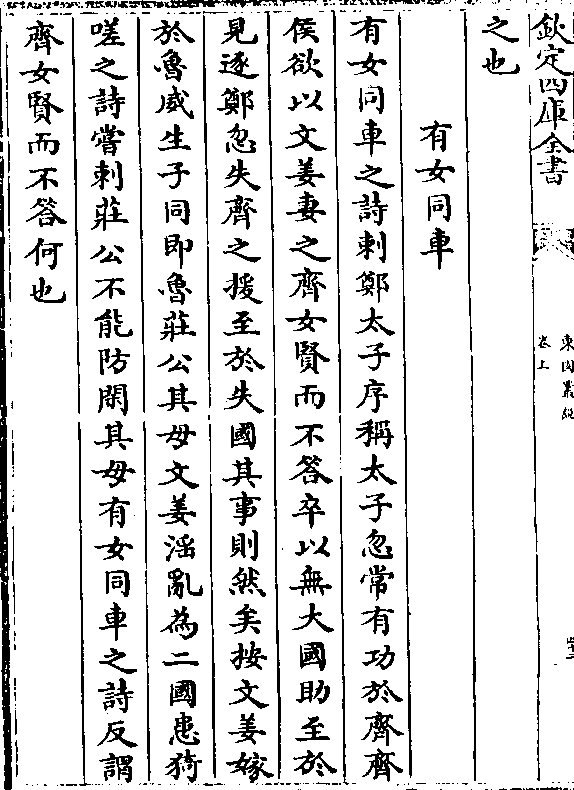 欽定四庫全書
東園叢說
卷上
之也
有女同車
有女同車之詩刺鄭太子序稱太子忽常有功於齊齊
侯欲以文姜妻之齊女賢而不答卒以無大國助至於
見逐鄭忽失齊之援至於失國其事則然矣按文姜嫁
於魯威生子同即魯莊公其母文姜淫亂為二國患猗
嗟之詩嘗刺莊公不能防閑其母有女同車之詩反謂
齊女賢而不答何也